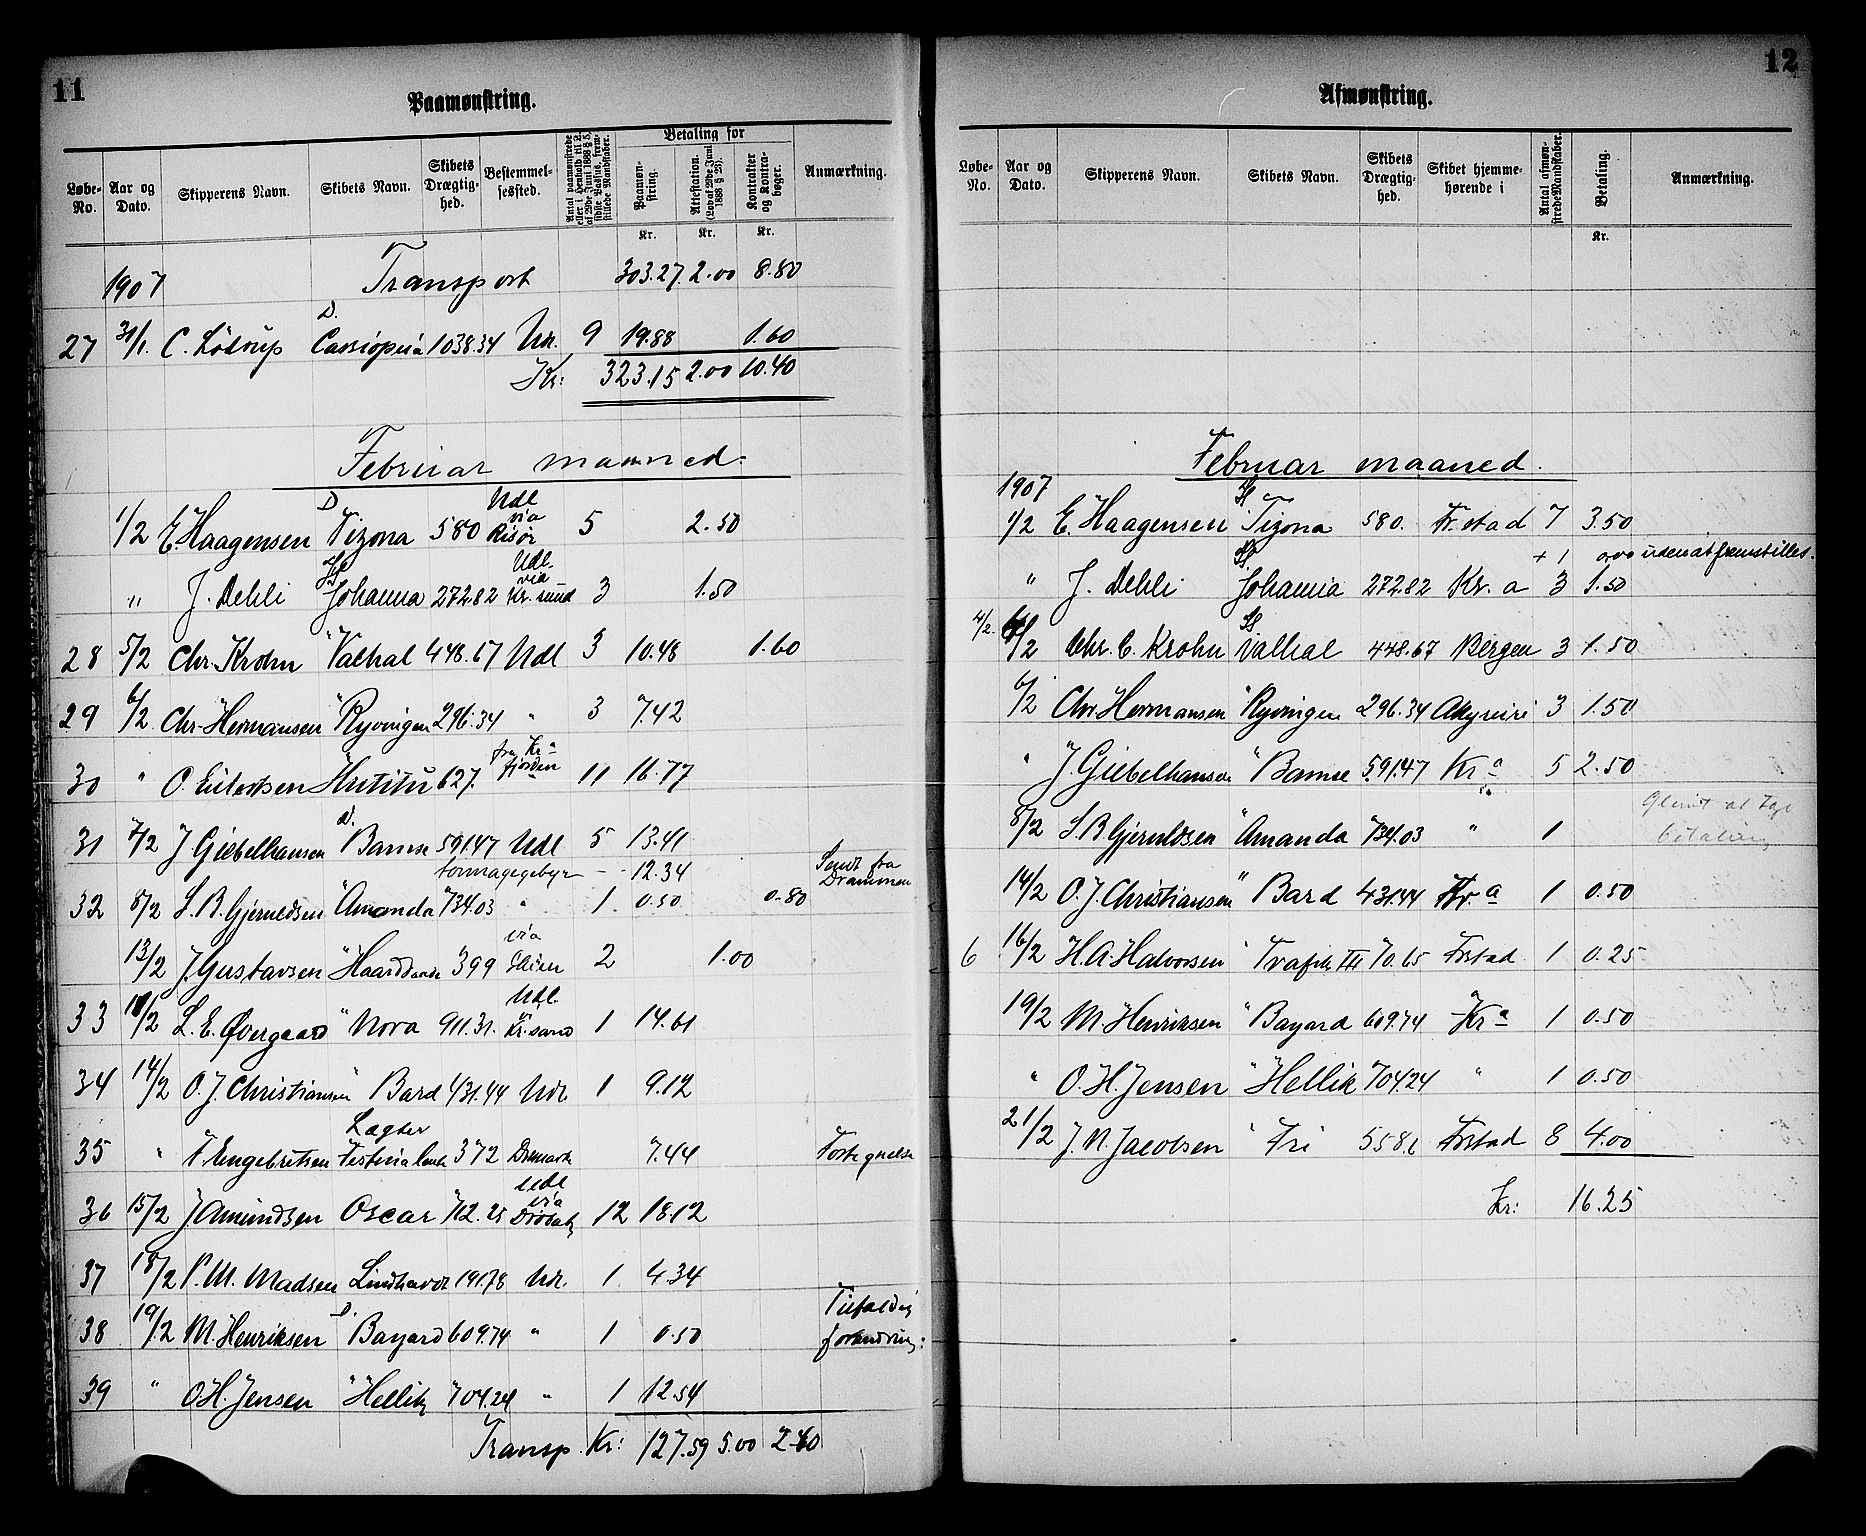 11
Paamønstring.
Løbe-No. Aar og Dato. Skipperens Navn. Skibets Navn. Skibets Drægtig-hed. Bestemmel-sessted. Antal paamønstrede eller i Henhold til L. af 29de Juni 1888 § 5, sidste Passus, frem-stillede Mandskaber. Betaling for Paamøn-string. Attestation. (Lov af 29de Juni 1888 § 23). Kontrakter og Kontra-bøger. Anmærkning.
Kr. Kr. Kr.
1907 Transport 303.27 2.00 8.80
27 31/1. C. Lötrup D. Cassiopeia 1038.34 Udl. 9 19.88 1.60
Kr: 323.15 2.00 10.40
Februar maaned.
1/2 E. Haagensen D Tizona 580 Udl via Risør 5 2.50
" J. Dehli Johanna 272.82 Udl. via Kr. sund 3 1.50
28 5/2 Chr. Krohn " Valhal 448.67 Udl 3 10.48 1.60
29 6/2 Chr. Hermansen " Ryvingen 296.34 " 3 7.42
30 " O. Eilertsen 627. fra Kra fjorden 11 16.77
31 7/2 J. Giebelhausen D. Bamse 591.47 Udl 5 13.41
tonnagegebyr - 12.34
32 8/2 S. B. Gjeruldsen " Amanda 734.03 " 1. 0.50 0.80 Sendt fra Drammen
13/2 J. Gustavsen " 399 via Skien 2 1.00
33 /2 L. E. Øvergaard " Nora 911.31. Udl. Kr. sand 1 14.61
34 14/2 O. J. Christiansen " Bard 431.44 Udl. 1 9.12
35 " T. Engebretsen Lægter 372 Danmark 7.44
36 15/2 J. Amundsen Oscar 712.25 Udl via Drøbak 12 18.12
37 18/2 P. M. Madsen 191.78 Udl. 1. 4.34
38 19/2 M. Henriksen D. Bayard 609.74 " 1 0.50 forandring:
39 " O. H. Jensen " Hellik 704.24 " 1 12.54
Transp. Kr: 127.59 5.00 2.40
12
Afmønstring.
Løbe-No. Aar og Dato. Skipperens Navn. Skibets Navn. Skibets Drægtig-hed. Skibet hjemme-hørende i Antal afmøn-strede Mandskaber. Betaling. Anmærkning.
Kr.
Februar maaned.
1907
1/2 E. Haagensen Tizona 580. Fr. stad 7 3.50
+ 1 0,00 uden at fremstilles.
" J. Dehli Johanna 272.82 Kr. a 3 1.50
4/2. /2 Chr. C. Krohn Valhal 448.67 Bergen 3 1.50
6/2 Chr. Hermansen " Ryvingen 296.34 3 1.50
" J. Giebelhausen " Bamse 591.47 Kra 5 2.50
8/2 S. B. Gjeruldsen " Amanda 734.03 " 1
14/2 O. J. Christiansen " Bard 431.44 Kr. a 1 0.50
6 16/2 H. A. Halvorsen " Trafik III 70.65 Frstad 1 0.25
19/2 M. Henriksen " Bayard 609.74 Kra 1 0.50
" O. H. Jensen " Hellik 704.24 " 1 0.50
21/2 J. N. Jacobsen " Fri 558.6 Frstad 8 4.00
Kr: 16.25